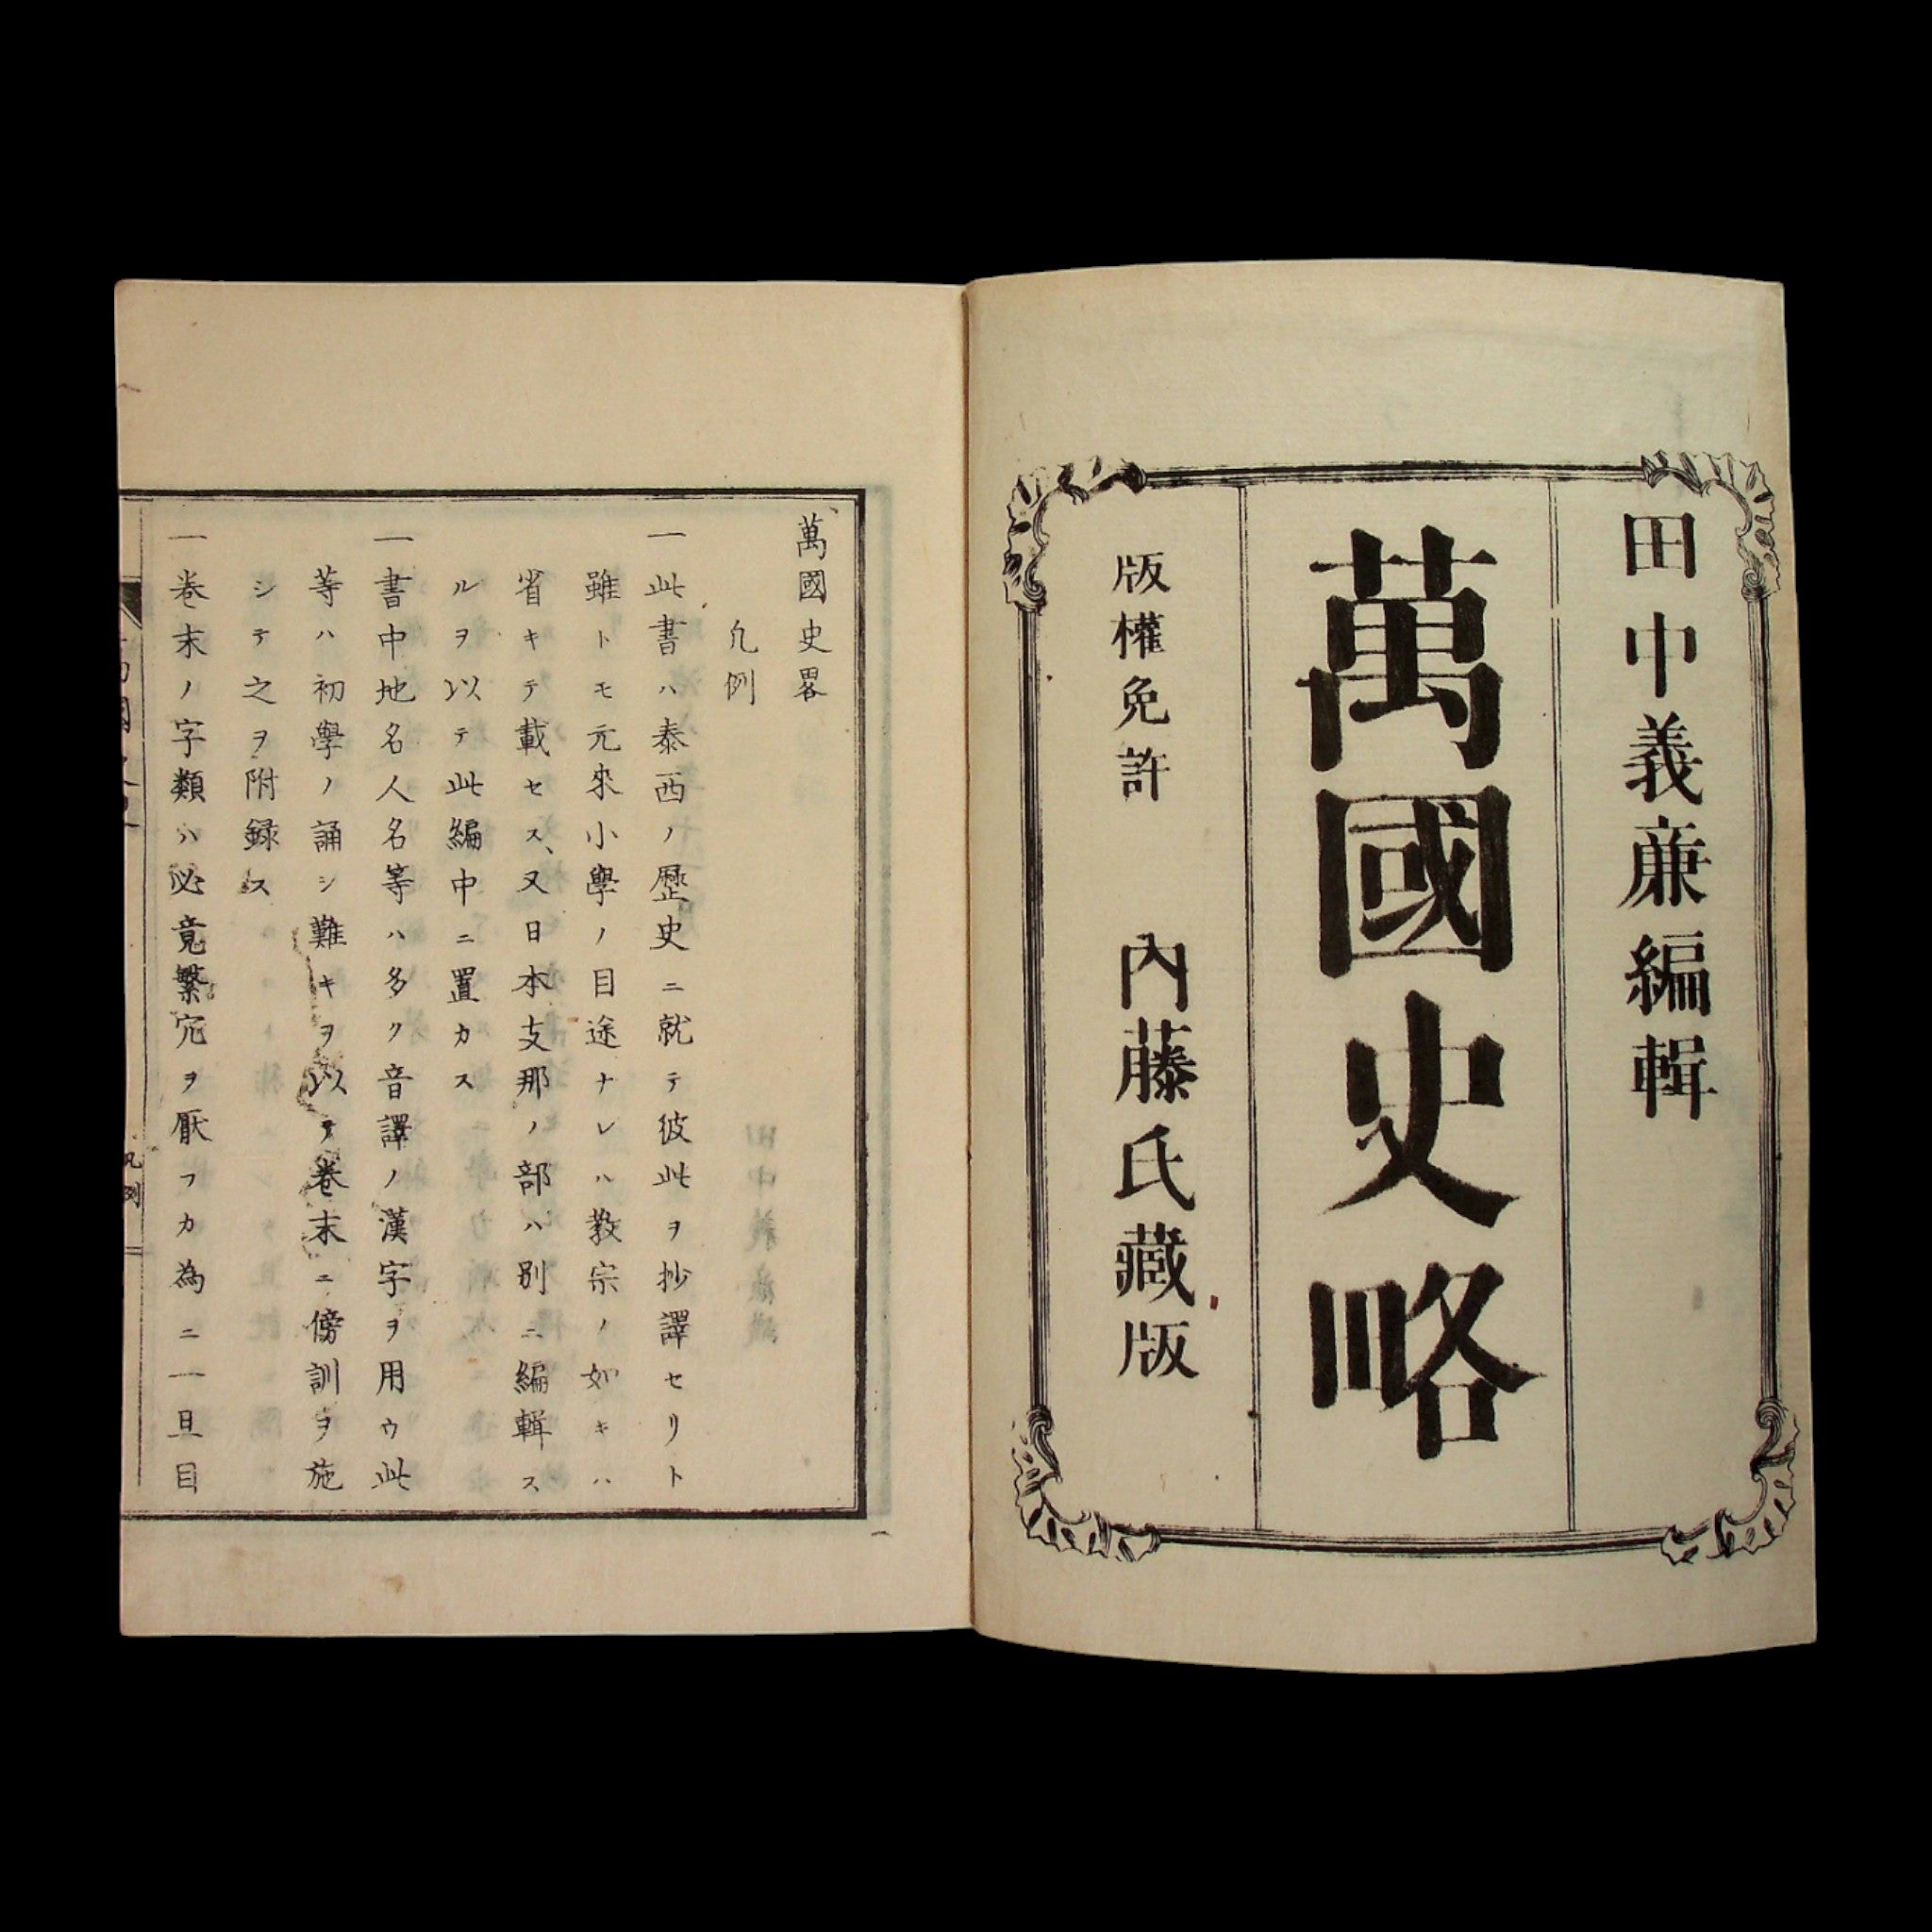 田中義廉編輯
萬國史略
版權免許　內藤氏藏版
萬國史畧
凡例
一此書ハ泰西ノ歷史ニ就テ彼此ヲ抄譯セリト
雖トモ元來小學ノ目途ナレハ教宗ノ如キハ
省キテ載セス、又日本支那ノ部ハ別ニ編輯ス、
ルヲ以テ此編中ニ置カス
一書中地名人名等ハ多ク音譯ノ漢字ヲ用ウ此
等ハ初學ノ誦シ難キヲ以テ卷末ニ傍訓ヲ施
シテ之ヲ附録ス
一卷末ノ字類ハ必竟繁冗ヲ厭フカ為ニ一旦目
凡例